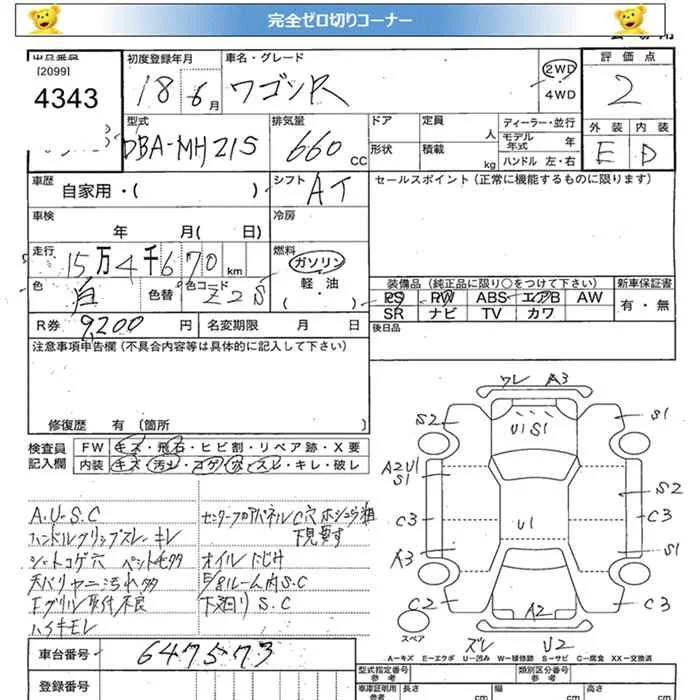 完全ゼロ切りコーナー
出品番号
[2099]
4343
初度登録年月
18 6月
車名・グレード
ワゴンR
2WD
・
4WD
評価点
2
型式
DBA-MH21S
排気量
660 CC
ドア
形状
定員 人
積載 kg
ディーラー・並行
モデル年式 年
ハンドル 左・右
外装 内装
E D
車歴
自家用・( )
シフト
AT
セールスポイント(正常に機能するものに限ります)
車検
年 月( 日)
冷房
走行
15万4千670km
燃料
ガソリン
軽・油
( )
色
白
色替
色コード
Z2S
装備品(純正品に限り○をつけて下さい)
PS PW ABS エアB AW
SR ナビ TV カワ
新車保証書
有・無
R券 9200円
名変期限 月 日
後日品
注意事項申告欄(不具合内容等は具体的に記入して下さい)
修復歴 有(箇所 )
検査員
記入欄
FW キズ・飛石・ヒビ割・リペア跡・X要
内装 キズ・汚れ・コゲ・穴・スレ・キレ・破レ
A.U-S.C
ハンドルグリップスレ・キレ
シートコゲ穴
天バリヤニ汚れ多
Fグリル取付不良
センターフロアパネルC穴ホシュウ粗
下見要す
オイルにじみ
E/gルーム内S.C
下廻りS.C
ワレ A3
S2
S1
U1 S1
A2U1
S1
S2
C3
U1
C3
A3
S1
C2
A2
C3
スペア
ズレ U2
A-キズ E-エクボ U-凹み W-補修跡 S-サビ C-腐食 XX-交換済
車台番号
647573
登録番号
型式指定番号
参考
類別区分番号
参考
車庫証明用
参考
長さ cm
幅 cm
高さ cm